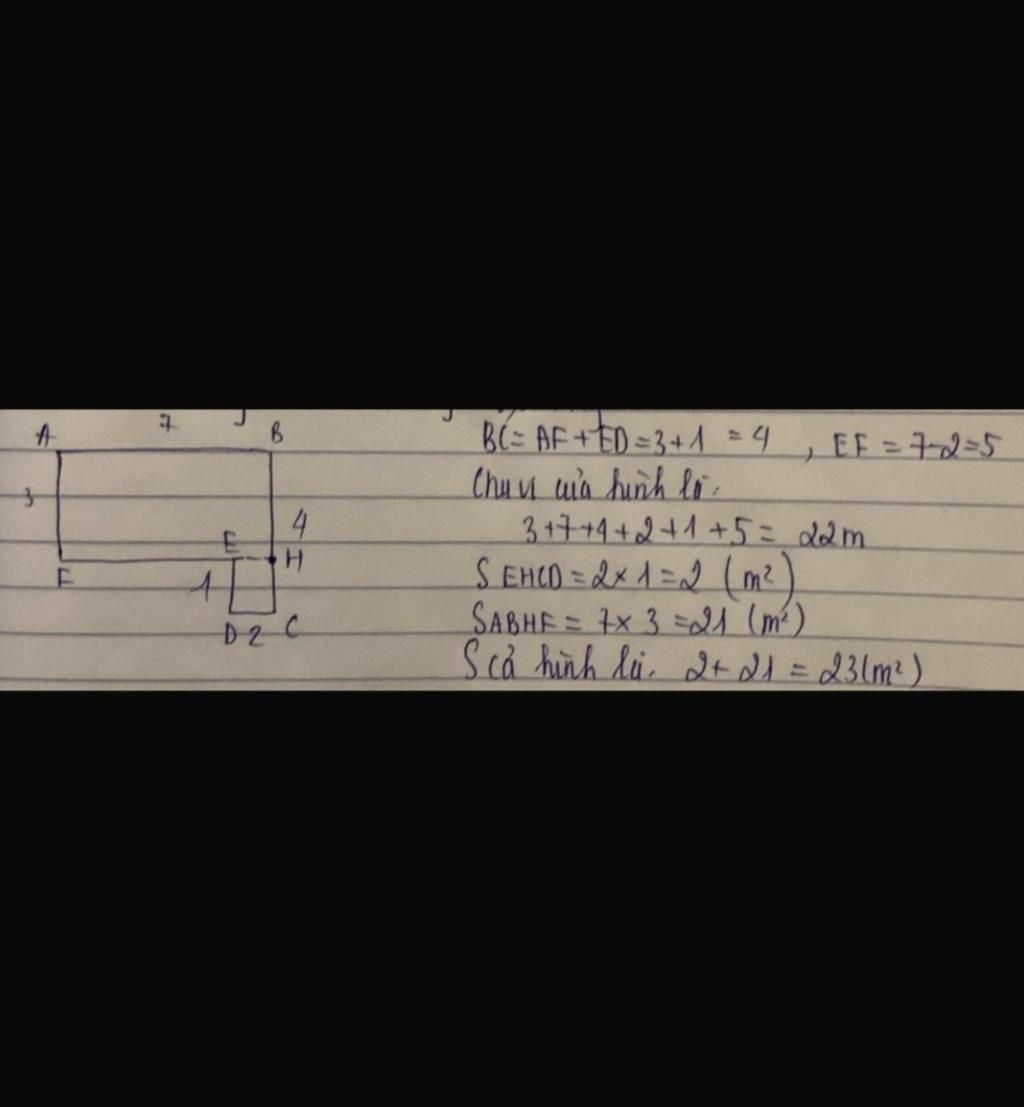 7
A
B
3
4
E
H
F
1
D 2 C
BC = AF + ED = 3 + 1 = 4 , EF = 7 - 2 = 5
Chu vi của hình là:
3 + 7 + 4 + 2 + 1 + 5 = 22m
S EHCD = 2 × 1 = 2 (m²)
SABHF = 7 × 3 = 21 (m²)
S cả hình là: 2 + 21 = 23 (m²)